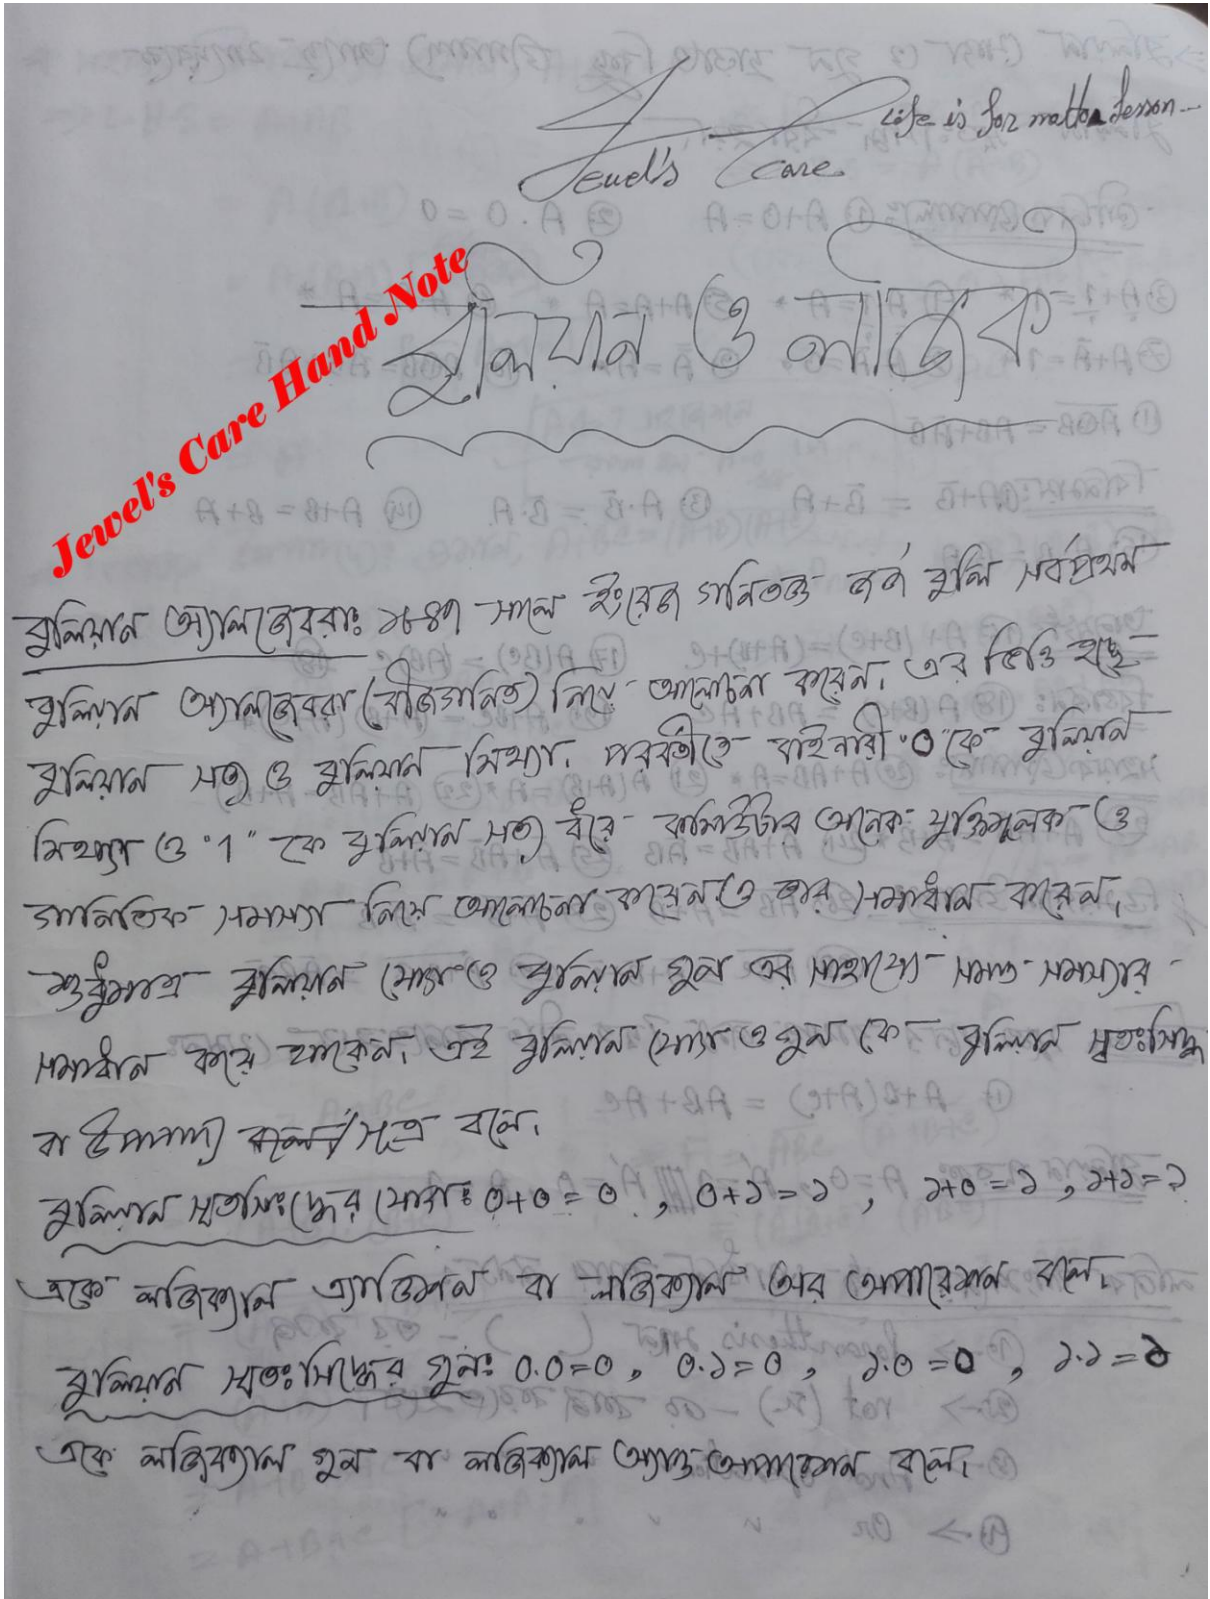 Life is for matto lesson
Jewel's Care
Jewel's Care Hand Note
বুলিয়ান ও লজিক
বুলিয়ান অ্যালজেবরাঃ ১৮৪৭ সালে ইংরেজ গনিতজ্ঞ জর্জ বুলি সর্বপ্রথম
বুলিয়ান অ্যালজেবরা (বীজগনিত) নিয়ে আলোচনা করেন। এর ভিত্তি হচ্ছে
বুলিয়ান সত্য ও বুলিয়ান মিথ্যা। পরবর্তীতে বাইনারী "0" কে বুলিয়ান
মিথ্যা ও "1" কে বুলিয়ান সত্য ধরে কম্পিউটার অনেক যুক্তিমূলক ও
গানিতিক সমস্যা নিয়ে আলোচনা করেন ও তার সমাধান করেন।
শুধুমাত্র বুলিয়ান যোগ ও বুলিয়ান গুন এর সাহায্যে সমস্ত সমস্যার
সমাধান করে থাকেন। এই বুলিয়ান যোগ ও গুন কে বুলিয়ান স্বতঃসিদ্ধ
বা উপপাদ্য / সূত্র বলে।
বুলিয়ান স্বতসিঃদ্ধের যোগঃ ০+০ = ০ , ০+১ = ১ , ১+০ = ১ , ১+১ = ১
একে লজিক্যাল এ্যাডিশন বা লজিক্যাল অর অপারেশন বলে।
বুলিয়ান স্বতঃসিদ্ধের গুনঃ ০.০ = ০ , ০.১ = ০ , ১.০ = ০ , ১.১ = ১
একে লজিক্যাল গুন বা লজিক্যাল অ্যান্ড অপারেশন বলে।